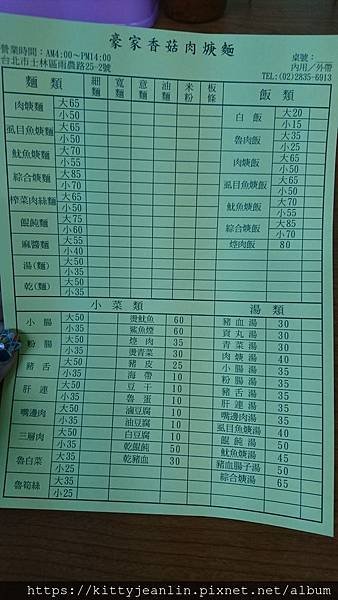 豪家香菇肉焿麵
營業時間：AM4:00～PM14:00
台北市士林區雨農路25-2號
桌號：
內用／外帶
TEL:(02)2835-6913
麵 類 細麵 寬麵 意麵 油麵 米粉 板條
肉焿麵 大65
小50
虱目魚焿麵 大65
小50
魷魚焿麵 大70
小55
綜合焿麵 大85
小70
榨菜肉絲麵 大65
小50
餛飩麵 大75
小60
麻醬麵 大55
小40
湯(麵) 大50
小35
乾(麵) 大50
小35
飯 類
白 飯 大20
小15
魯肉飯 大35
小25
肉焿飯 大65
小50
虱目魚焿飯 大65
小50
魷魚焿飯 大70
小55
綜合焿飯 大85
小70
焢肉飯 80
小 菜 類
小 腸 大50
小35
粉 腸 大50
小35
豬 舌 大50
小35
肝 連 大50
小35
嘴邊肉 大50
小35
三層肉 大50
小35
魯白菜 大35
小25
魯筍絲 大35
小25
燙魷魚 60
鯊魚煙 60
焢 肉 35
燙青菜 30
豬 皮 25
海 帶 10
豆 干 10
魯 蛋 10
滷豆腐 10
油豆腐 10
白豆腐 10
乾餛飩 50
乾豬血 30
湯 類
豬血湯 30
貢丸湯 30
青菜湯 30
肉焿湯 40
小腸湯 35
粉腸湯 35
豬舌湯 35
肝連湯 35
嘴邊肉湯 35
虱目魚焿湯 40
餛飩湯 50
魷魚焿湯 45
豬血腸子湯 50
綜合焿湯 65
https://kittyjeanlin.pixnet.net/album